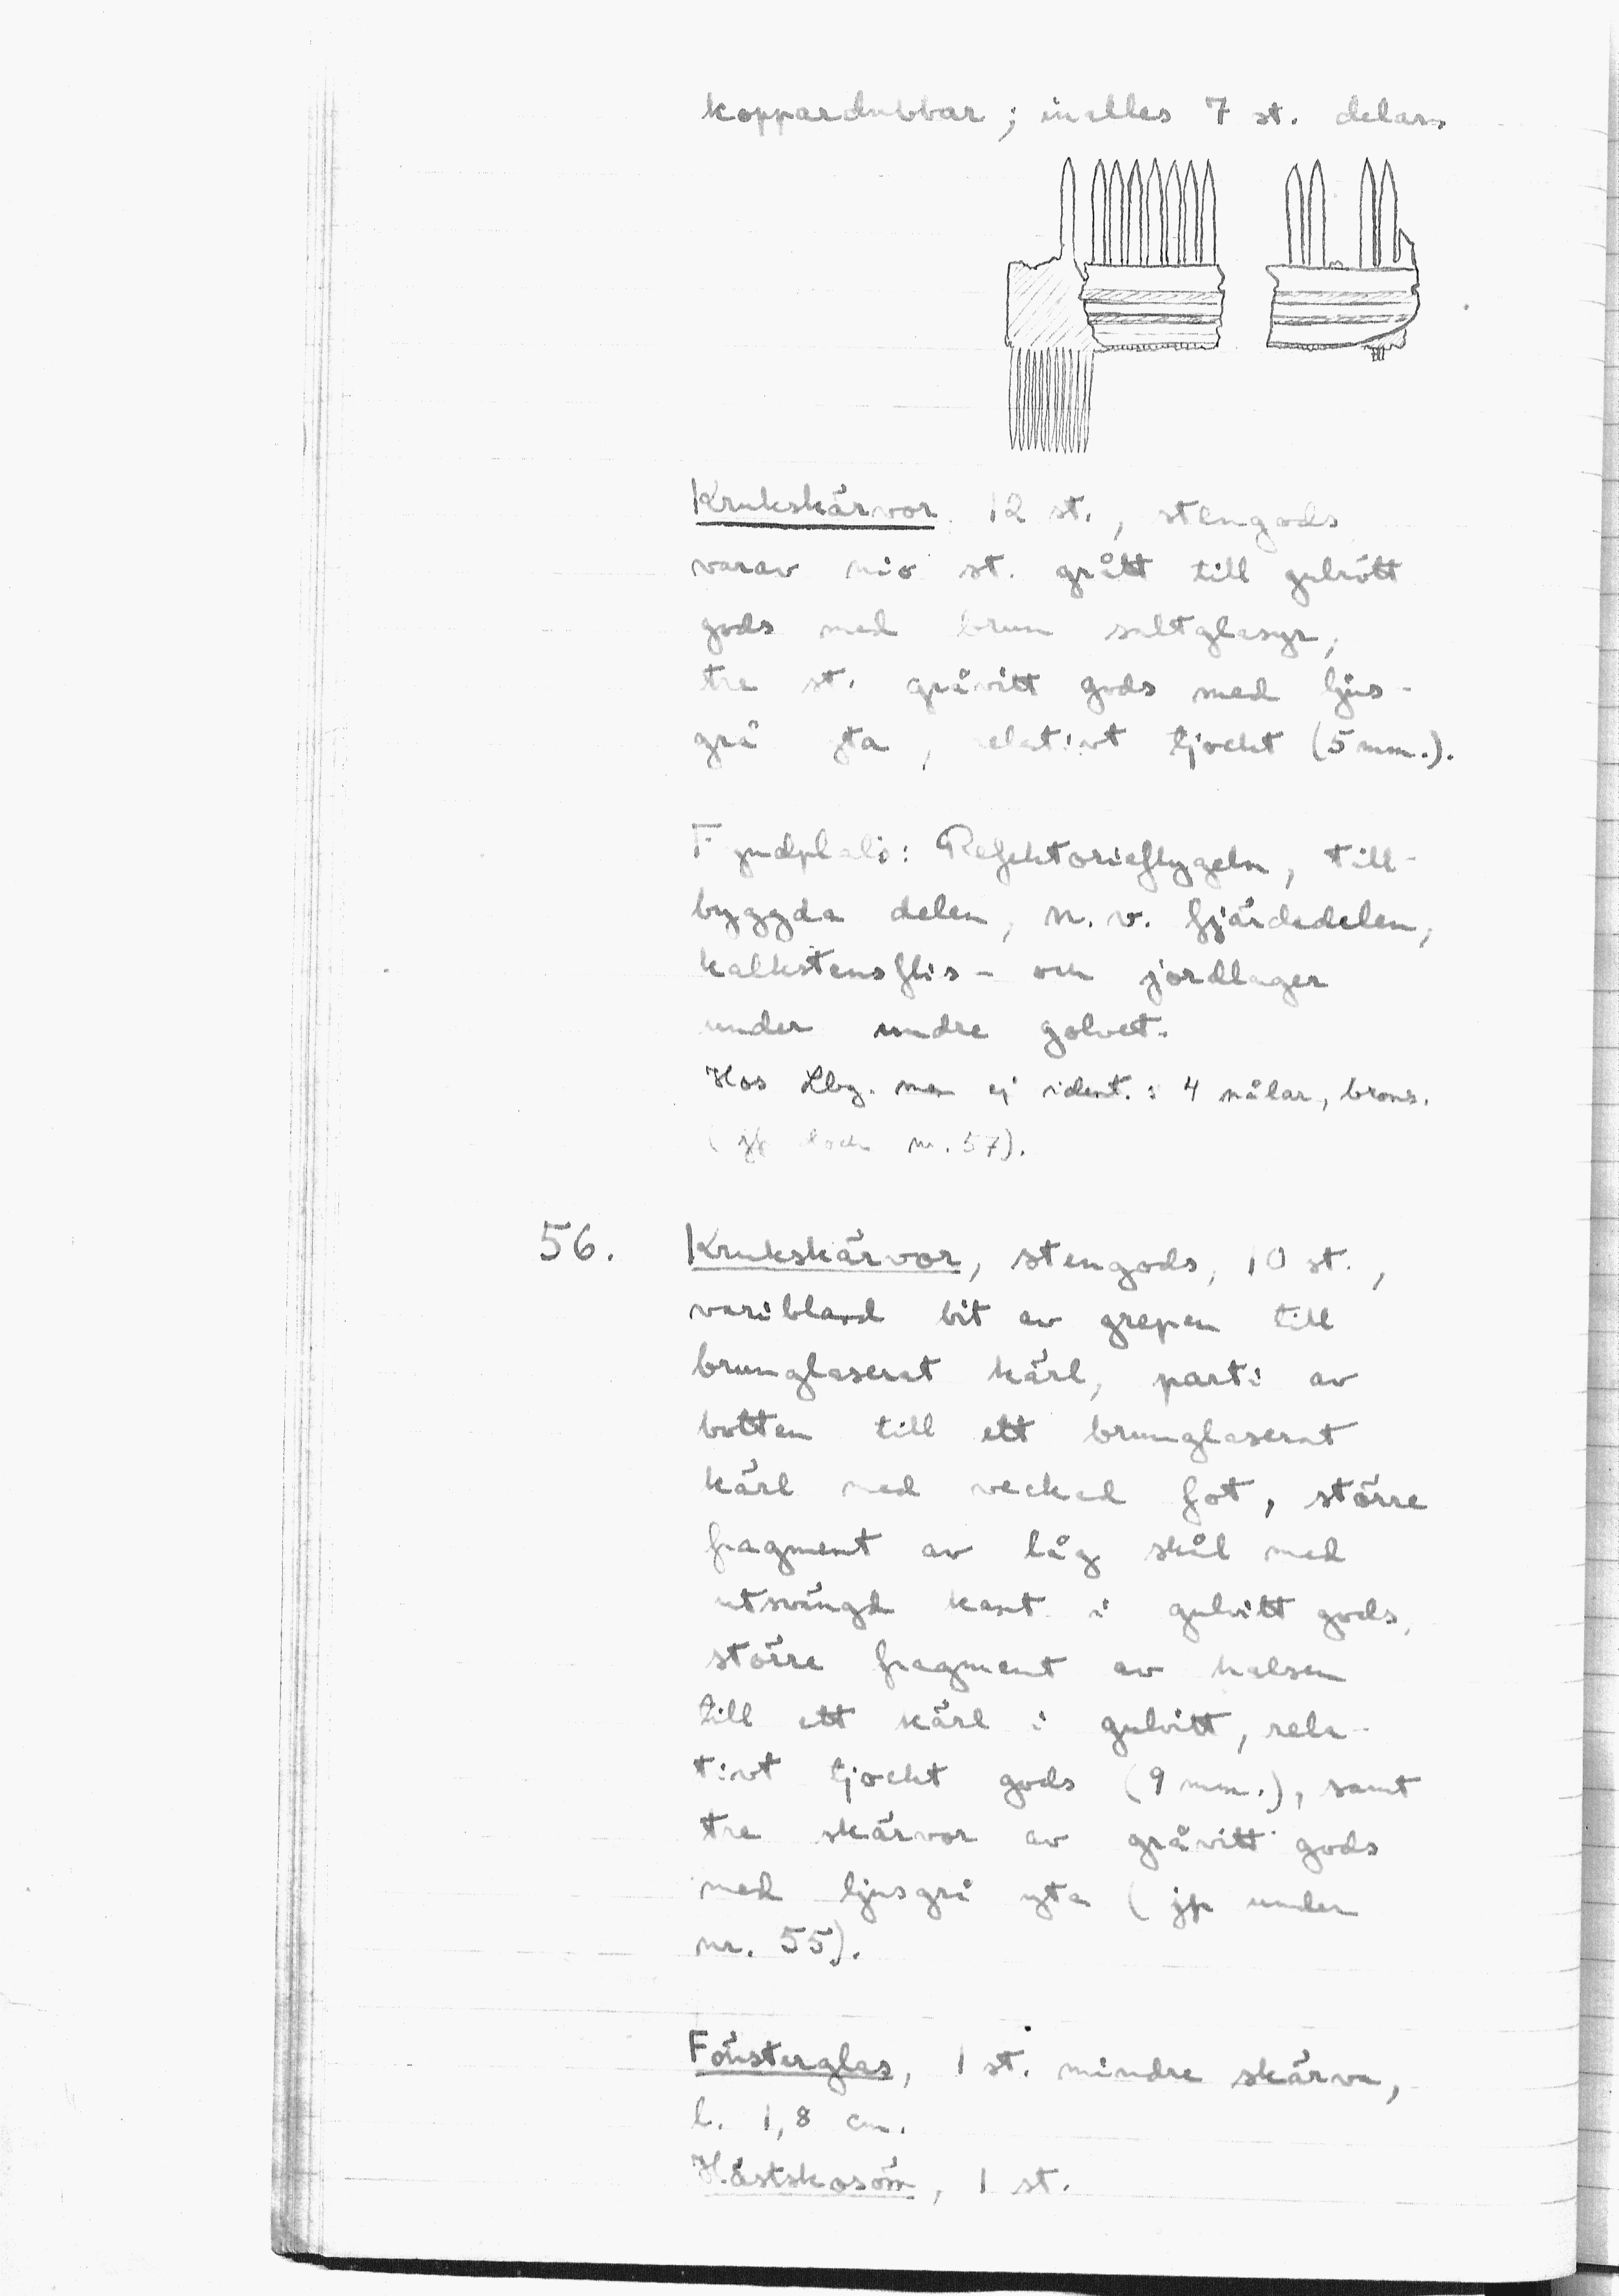 koppardubbar ; inalles 7 st. delar.
Krukskärvor, 12 st., stengods
varav nio st. grått till gulrött
gods med brun saltglasyr,
tre st. gråvitt gods med ljus-
grå yta, relativt tjockt (5 mm.).
Fyndplats: Refektorieflygeln, till-
byggda delen, n.v. fjärdedelen,
kalkstensflis- och jordlager
under undre golvet.
Hos Lbg. men ej ident. : 4 nålar, brons.
(jfr dock nr. 57).
56. Krukskärvor, stengods, 10 st.,
varibland bit av grepen till
brunglaserat kärl, parti av
botten till ett brunglaserat
kärl med veckad fot, större
fragment av låg skål med
utsvängd kant i gulvitt gods,
större fragment av halsen
till ett kärl i gulvitt, rela-
tivt tjockt gods (9 mm.), samt
tre skärvor av gråvitt gods
med ljusgrå yta (jfr under
nr. 55).
Fönsterglas, 1 st. mindre skärva,
l. 1,8 cm.
Hästskosöm, 1 st.